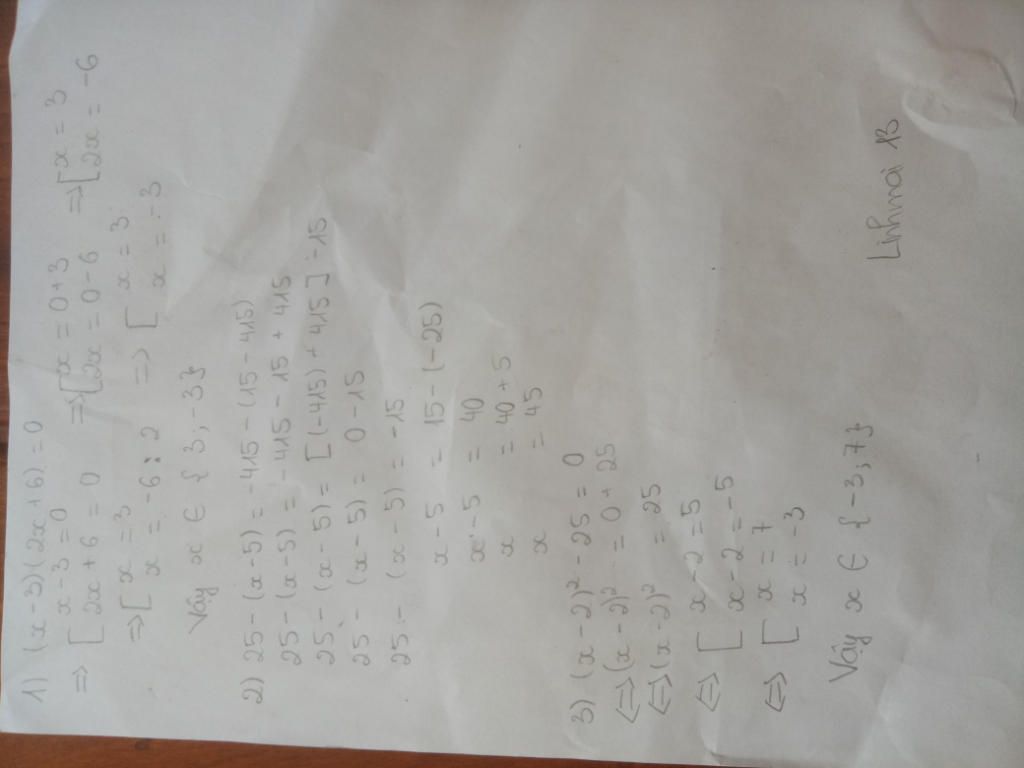 1) (x-3)(2x+6)=0
=> [ x-3=0 => [ x = 0+3 => [ x = 3
2x+6 = 0 2x = 0-6 2x = -6
=> [ x = 3 => [ x = 3
x = -6:2 x = -3
Vậy x ∈ {3;-3}
2) 25-(x-5) = -415-(15-415)
25-(x-5) = -415-15+415
25-(x-5) = [(-415)+415]-15
25-(x-5) = 0-15
25-(x-5) = -15
x-5 = 15-(-25)
x-5 = 40
x = 40+5
x = 45
3) (x-2)²-25 = 0
<=> (x-2)² = 0+25
<=> (x-2)² = 25
<=> [ x-2=5
x-2=-5
<=> [ x = 7
x = -3
Vậy x ∈ {-3;7}
Linhmai 13